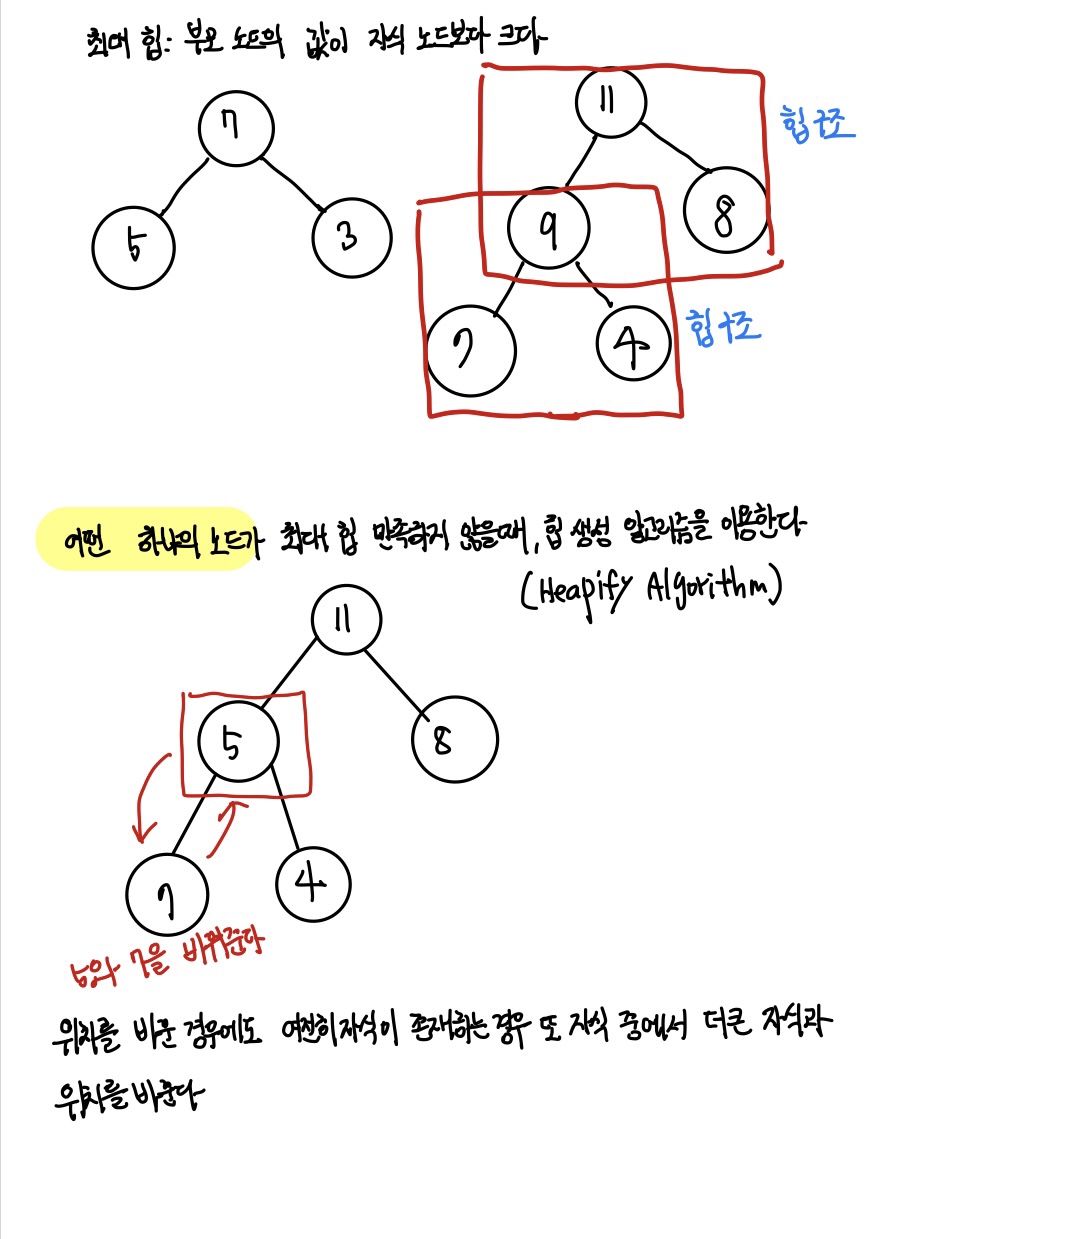 최대 힙: 부모 노드의 값이 자식 노드보다 크다
7
11
힙 구조
5
3
9
8
7
4
힙 구조
어떤 하나의 노드가 최대 힙 만족하지 않을때, 힙 생성 알고리즘을 이용한다
(Heapify Algorithm)
11
5
8
7
4
5와 7을 바꿔준다
위치를 바꾼 경우에도 여전히 자식이 존재하는 경우 또 자식 중에서 더 큰 자식과
위치를 바꾼다